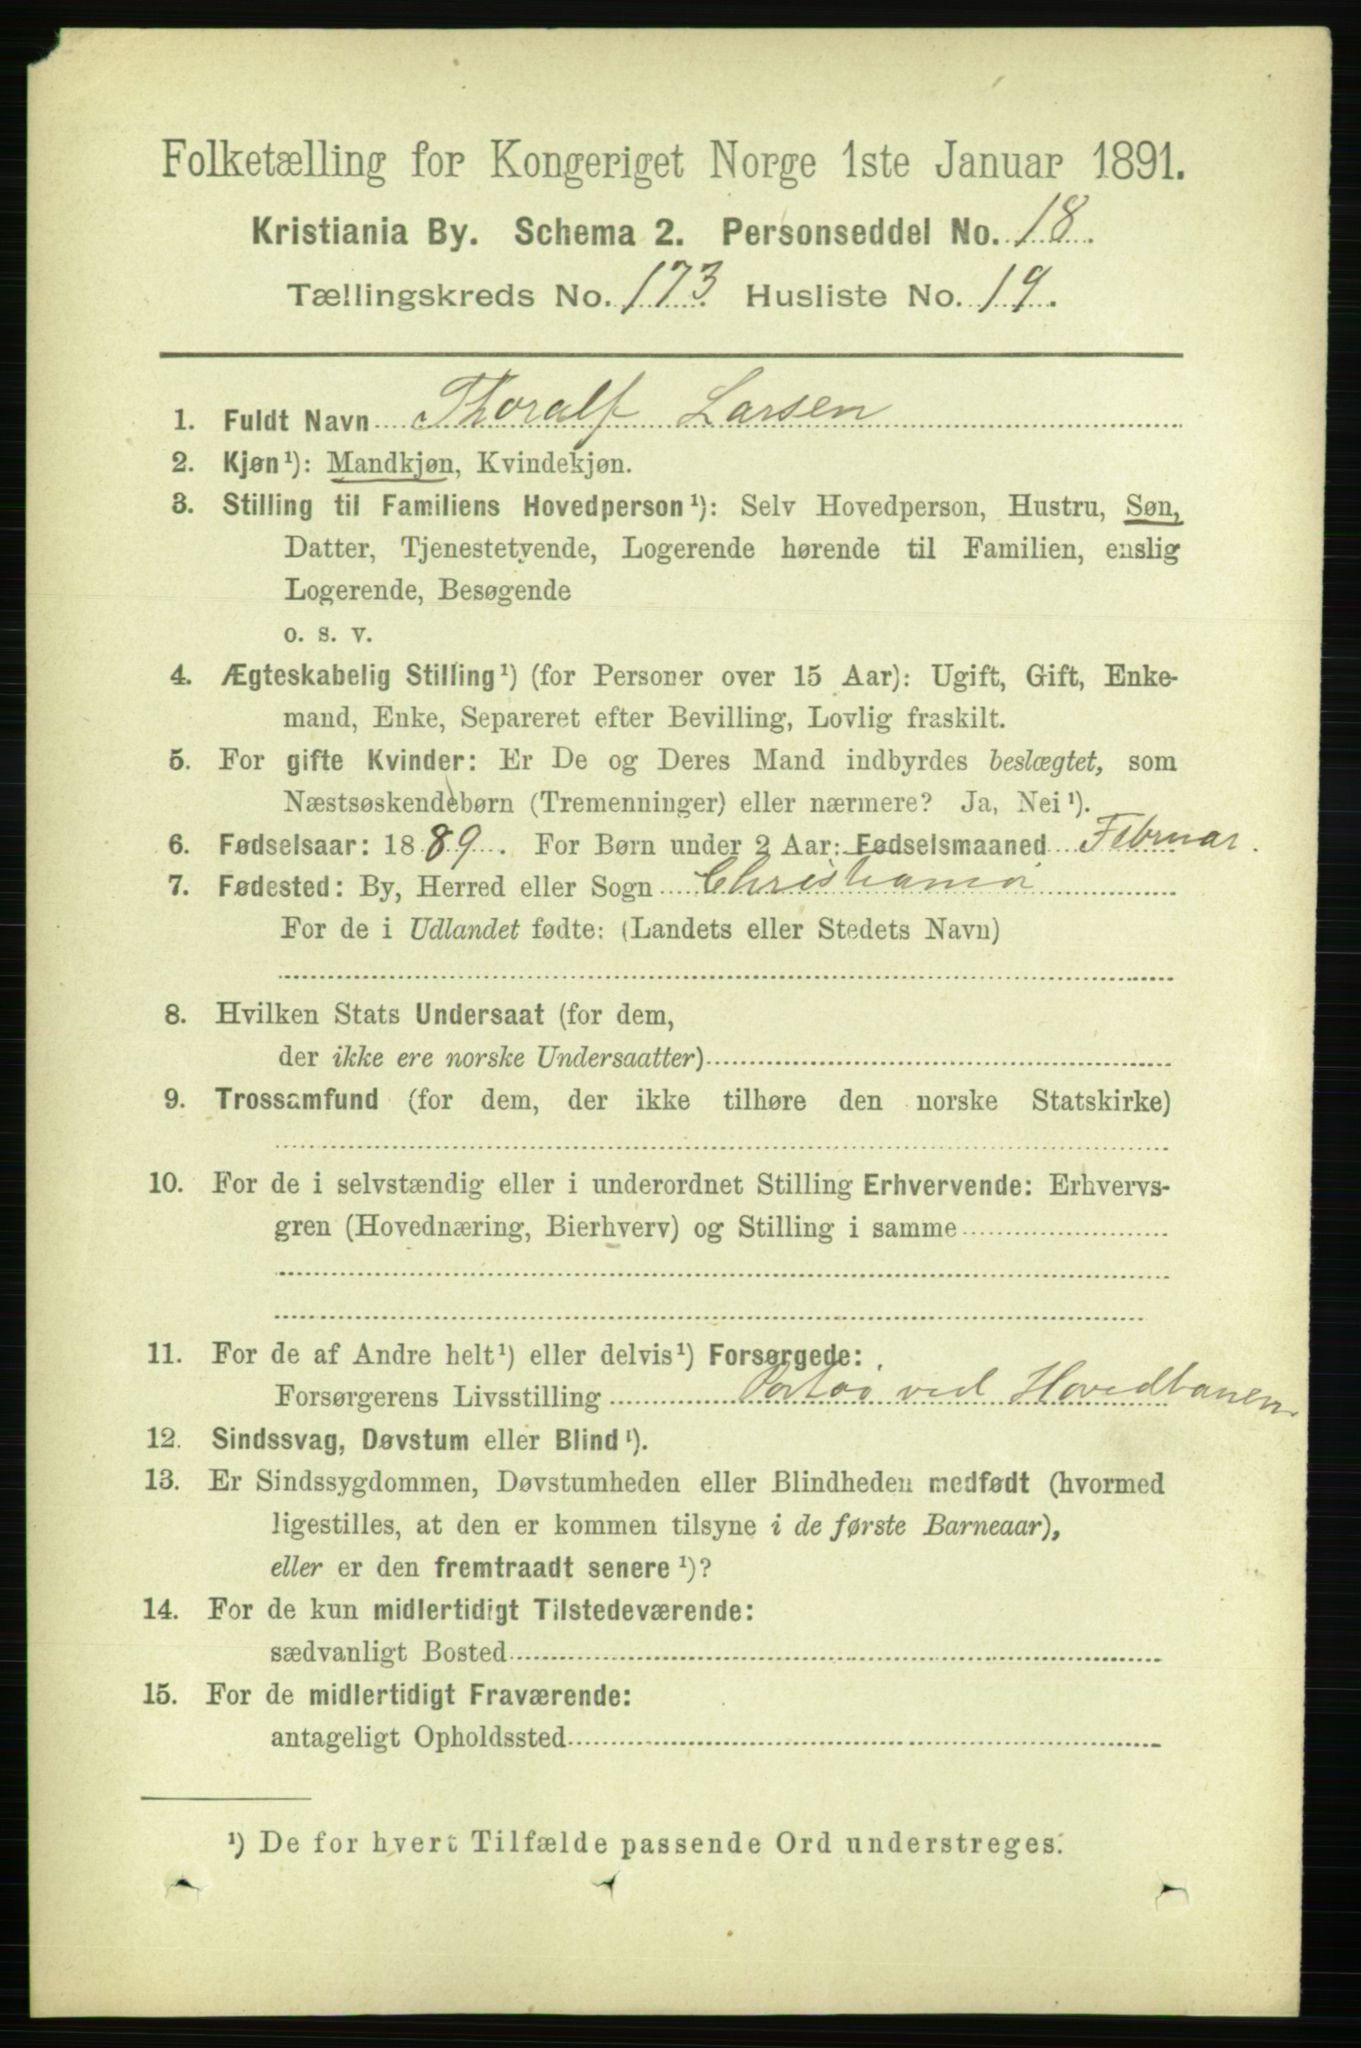 Folketælling for Kongeriget Norge 1ste Januar 1891.
Kristiania By. Schema 2. Personseddel No. 18.
Tællingskreds No. 173 Husliste No. 19.
1. Fuldt Navn Thoralf Larsen
2. Kjøn¹): Mandkjøn, Kvindekjøn.
3. Stilling til Familiens Hovedperson¹): Selv Hovedperson, Hustru, Søn,
Datter, Tjenestetyende, Logerende hørende til Familien, enslig
Logerende, Besøgende
o. s. v.
4. Ægteskabelig Stilling¹) (for Personer over 15 Aar): Ugift, Gift, Enke-
mand, Enke, Separeret efter Bevilling, Lovlig fraskilt.
5. For gifte Kvinder: Er De og Deres Mand indbyrdes beslægtet, som
Næstsøskendebørn (Tremenninger) eller nærmere? Ja, Nei¹).
6. Fødselsaar: 1889. For Børn under 2 Aar: Fødselsmaaned Februar.
7. Fødested: By, Herred eller Sogn Christiania
For de i Udlandet fødte: (Landets eller Stedets Navn)
8. Hvilken Stats Undersaat (for dem,
der ikke ere norske Undersaatter)
9. Trossamfund (for dem, der ikke tilhøre den norske Statskirke)
10. For de i selvstændig eller i underordnet Stilling Erhvervende: Erhvervs-
gren (Hovednæring, Bierhverv) og Stilling i samme
11. For de af Andre helt¹) eller delvis¹) Forsørgede:
Forsørgerens Livsstilling ved Hovedbanen
12. Sindssvag, Døvstum eller Blind¹).
13. Er Sindssygdommen, Døvstumheden eller Blindheden medfødt (hvormed
ligestilles, at den er kommen tilsyne i de første Barneaar),
eller er den fremtraadt senere¹)?
14. For de kun midlertidigt Tilstedeværende:
sædvanligt Bosted
15. For de midlertidigt Fraværende:
antageligt Opholdssted
¹) De for hvert Tilfælde passende Ord understreges.